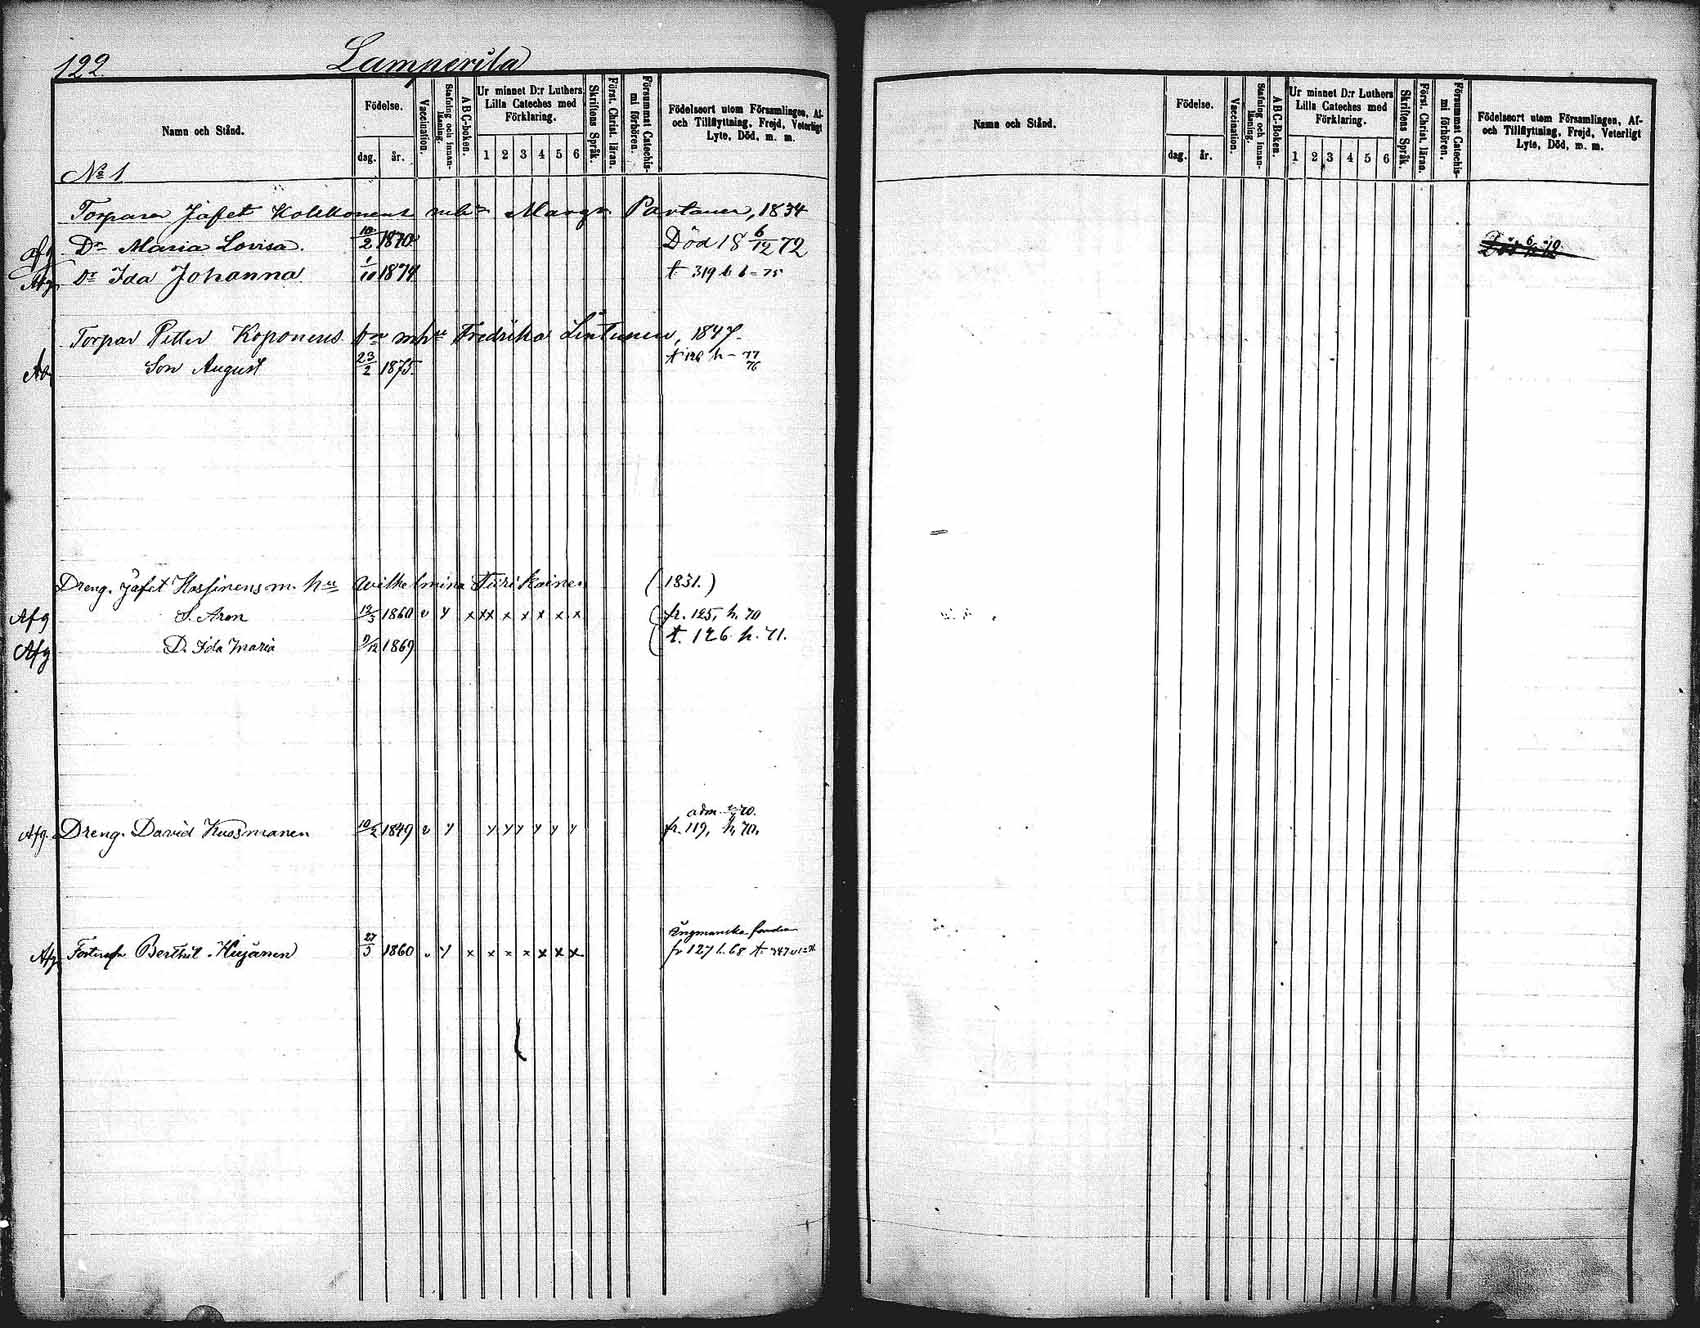 122. Lamperila
Namn och Stånd.
Födelse.
dag.
år.
Vaccination.
Stafning och innanläsning.
A B C-boken.
Ur minnet D:r Luthers Lilla Cateches med Förklaring.
1 2 3 4 5 6
Skriftens Språk.
Först. Christ. läran.
Försummat Catechismi förhören.
Födelseort utom Församlingen, Af- och Tillflyttning, Frejd, Veterligt Lyte, Död, m. m.
No 1
Torparen Jafet Kolehmonens mhu Margr. Partanen, 1834
afg Dr Maria Lovisa. 10/2 1870 Död 18 6/12 72
Afg Dr Ida Johanna 1/10 1874 t. 319 b b - 75
Torpar Petter Koponens mhu Fredrika Lintunen, 1847.
Son August 23/2 1875. t 126 h - 77/76
Dreng. Jafet Hassinens m. hu Wilhelmina Turikainen (1831.)
Afg S. Aron 12/3 1860 v y x xx x x x x x fr. 125, h. 70
Afg D. Ida Maria 9/12 1869 t. 126 h. 71.
adm. 70.
Afg. Dreng. David Kuosmanen 10/2 1849 v y y y y y y y fr. 119, h. 70.
Afg Berthil Hujanen 27/3 1860 v y x x x x x x x fr 127 h. 68 t.
Namn och Stånd.
Födelse.
dag.
år.
Vaccination.
Stafning och innanläsning.
A B C-Boken.
Ur minnet D:r Luthers Lilla Cateches med Förklaring.
1 2 3 4 5 6
Skriftens Språk.
Först. Christ. läran.
Försummat Catechismi förhören.
Födelseort utom Församlingen, Af- och Tillflyttning, Frejd, Veterligt Lyte, Död, m. m.